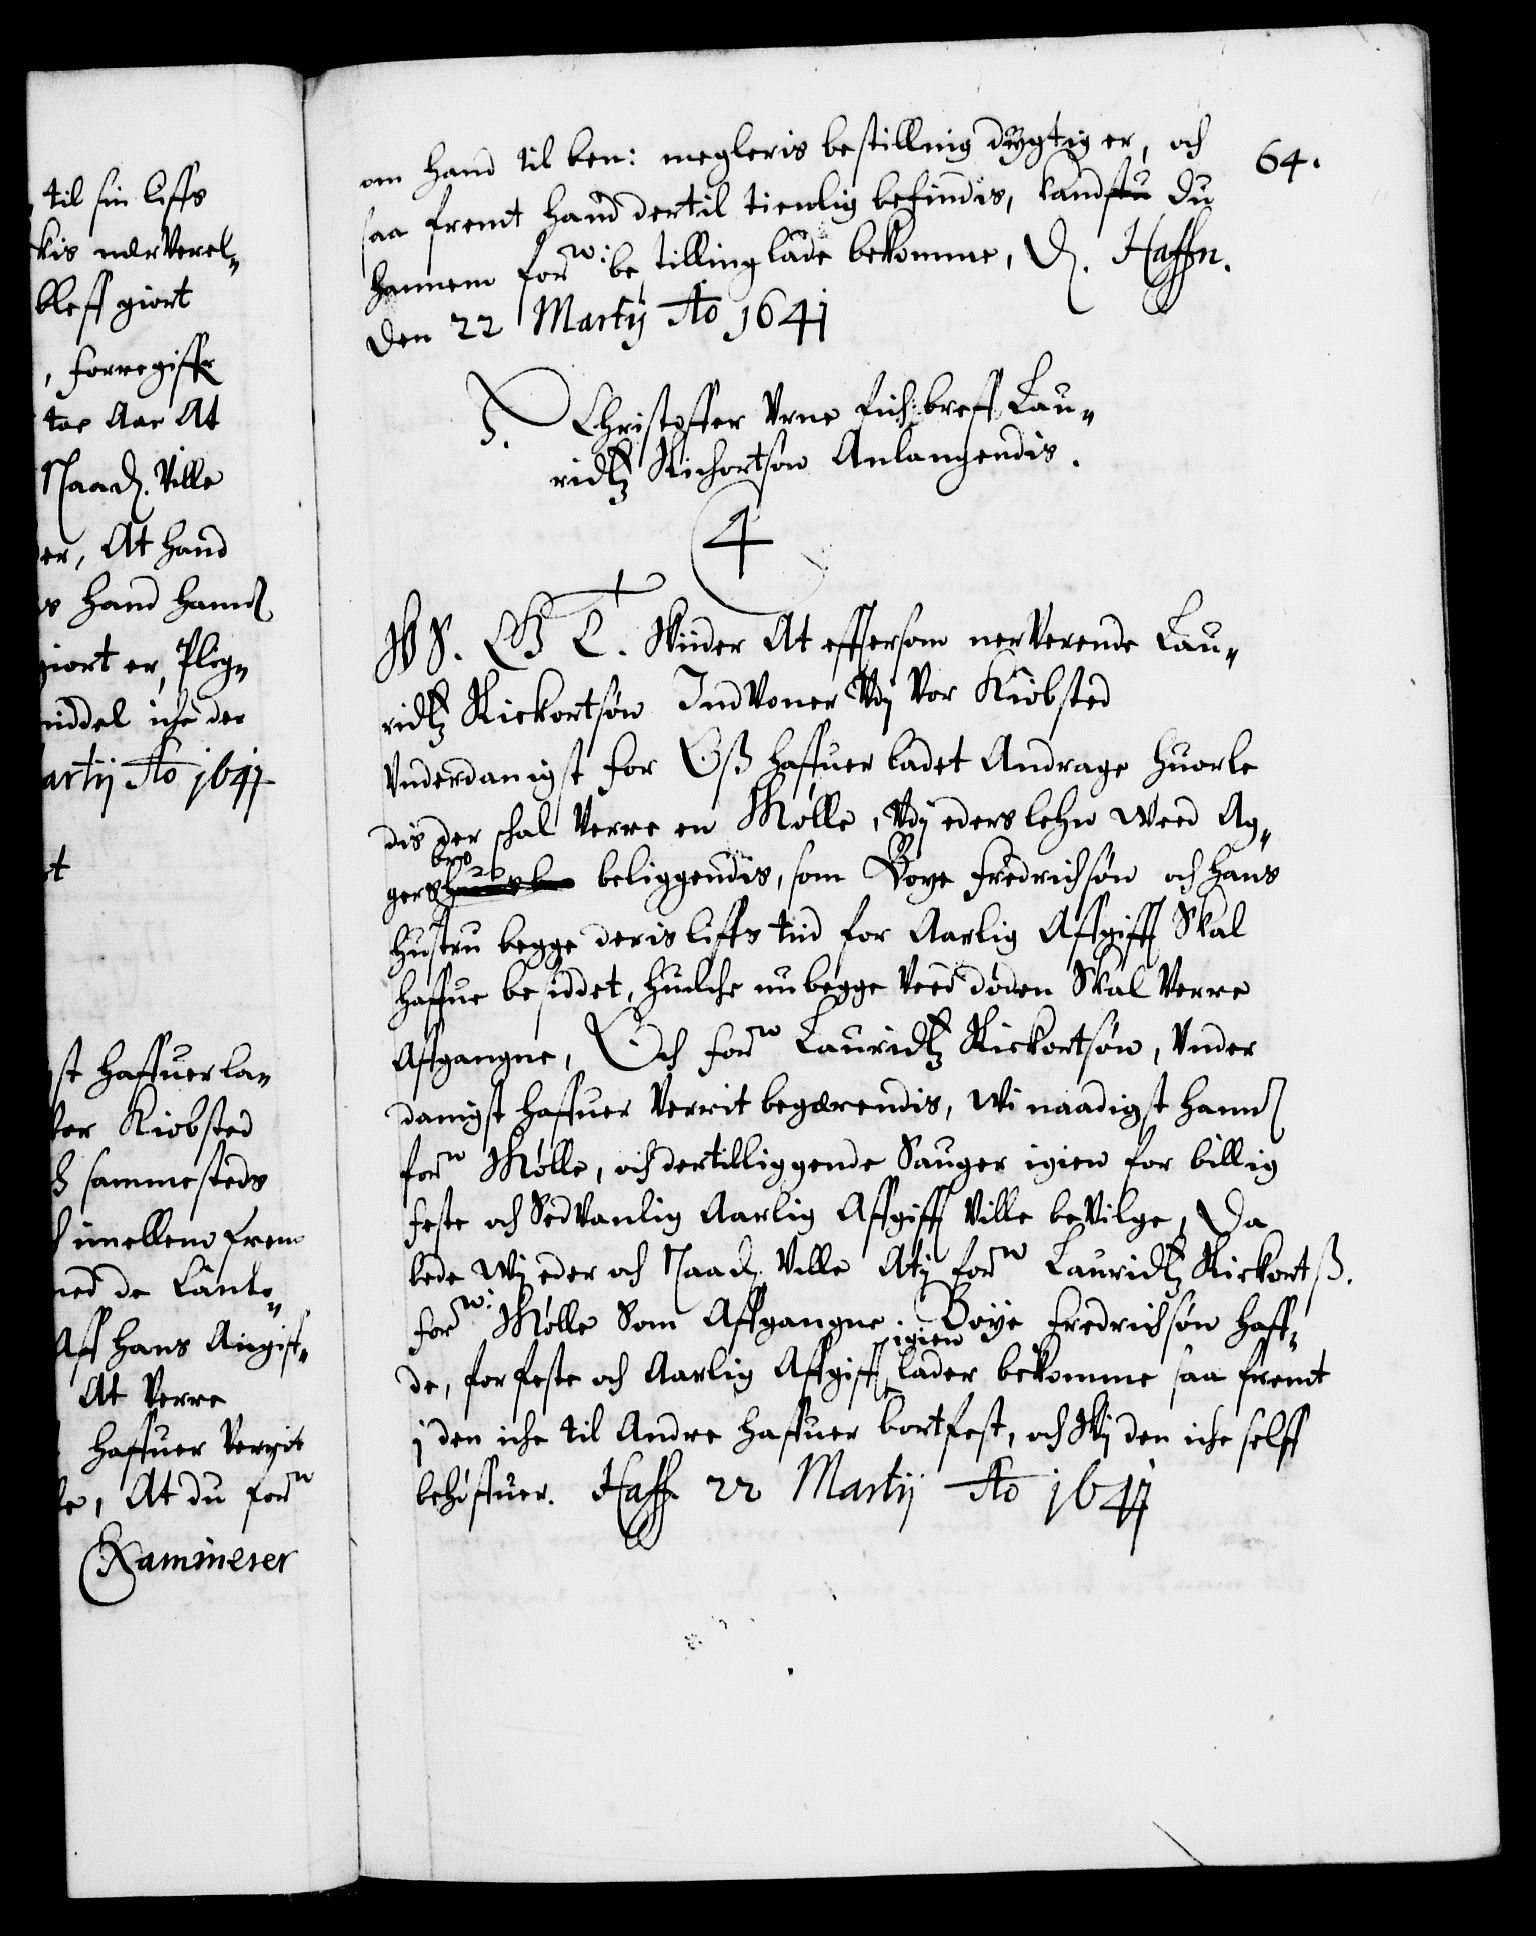 til sin liffs
kis nerverel„
bleff giort
, forregiffr
toe Aar At
Naad. Ville
er, At hand
s hand hannd
giort er, Pleg„
middel iche der
artij Ao 1641
t
st haffuer la„
for Kiobsted
sammesteds
imellem frem
ned de Lante„
Aff hans Angift„
At Verre
haffuer Verrit
le, At du forn
Examinerer
64.
om hand til ben: megleris bestilling dygtig er, och
saa fremt hand dertil tienlig befindis, kandstu du
hannem forn: bestilling lade bekomme, D. Haffn.
Den 22 Martij Ao 1641
Christoffer Vrne fich breff Lau„
ridtz Richortsøn Anlangendis.
4
W S. G T. Wiider At effersom nerverende Lau„
ridtz Rickortsøn Indvoner Vdj Vor Kiøbsted
Vnderdanigst for Oss haffuer ladet Andrage huorle
dis der schal Verre en Mølle, Vdj eders lehn weed Ag„
gers beliggendis, som Boye Fredrichsøn och hans
hustru begge deris liffs tiid for Aarlig Affgifft Skal
haffue besiddet, huilche nu begge Veed døden Skal Verre
Affgangne, Och forn Lauridtz Rickortsøn, Vnder
danigst haffuer Verrit begærendis, Wi naadigst hannd
forn Mølle, och dertilliggende Sauger igien for billig
feste och Sedvanlig Aarlig Affgifft Ville beVilge, Da
bede Wj eder och Naad. Ville Atj forn Lauridtz Rickortß.
forn: Mølle Som Affgangne Boye Fredrichsøn haff„
de, for feste och Aarlig Affgifft igien lader bekomme saa fremt
j den iche til Andre haffuer bortfest, och Wj den iche selff
behøffuer. Haffn 22 Martij Ao 1641